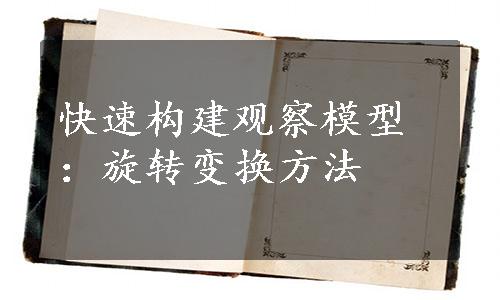 快速构建观察模型
：旋转变换方法